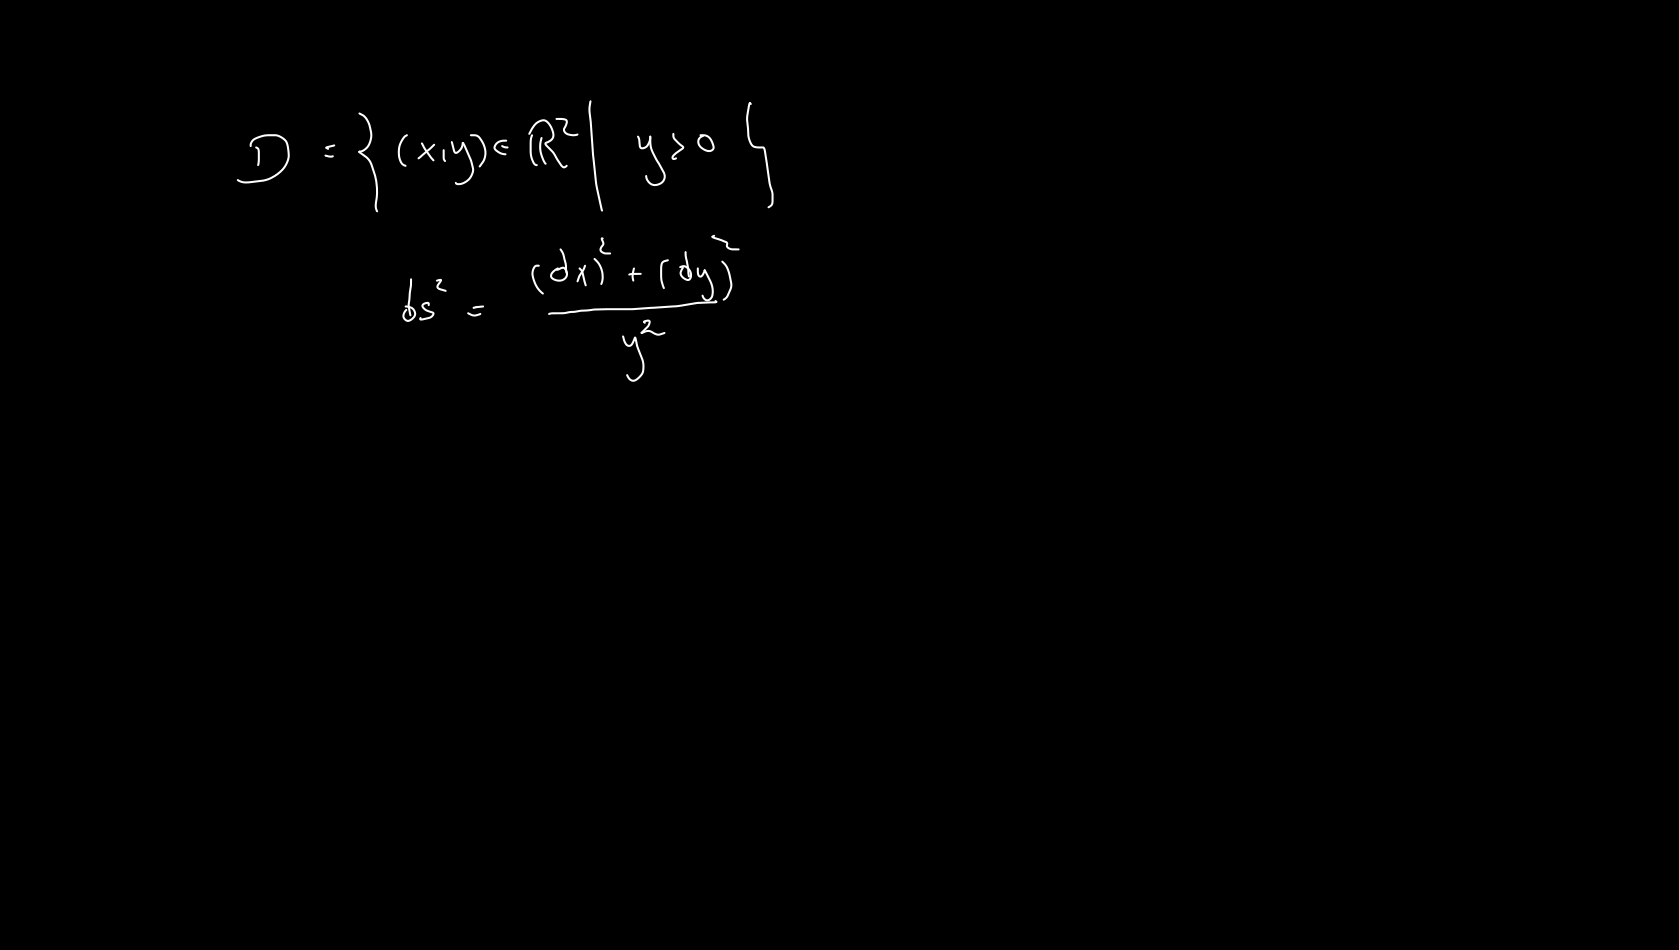 D = { (x,y) ∈ ℝ² | y > 0 }
ds² = ((dx)² + (dy)²) / y²